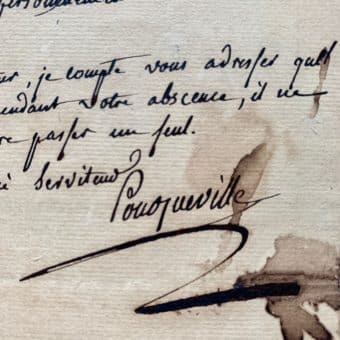 personnellement
ur, je compte vous adresser quel
endant votre abscence, il ne
re passer un seul.
é Serviteur
Pouqueville